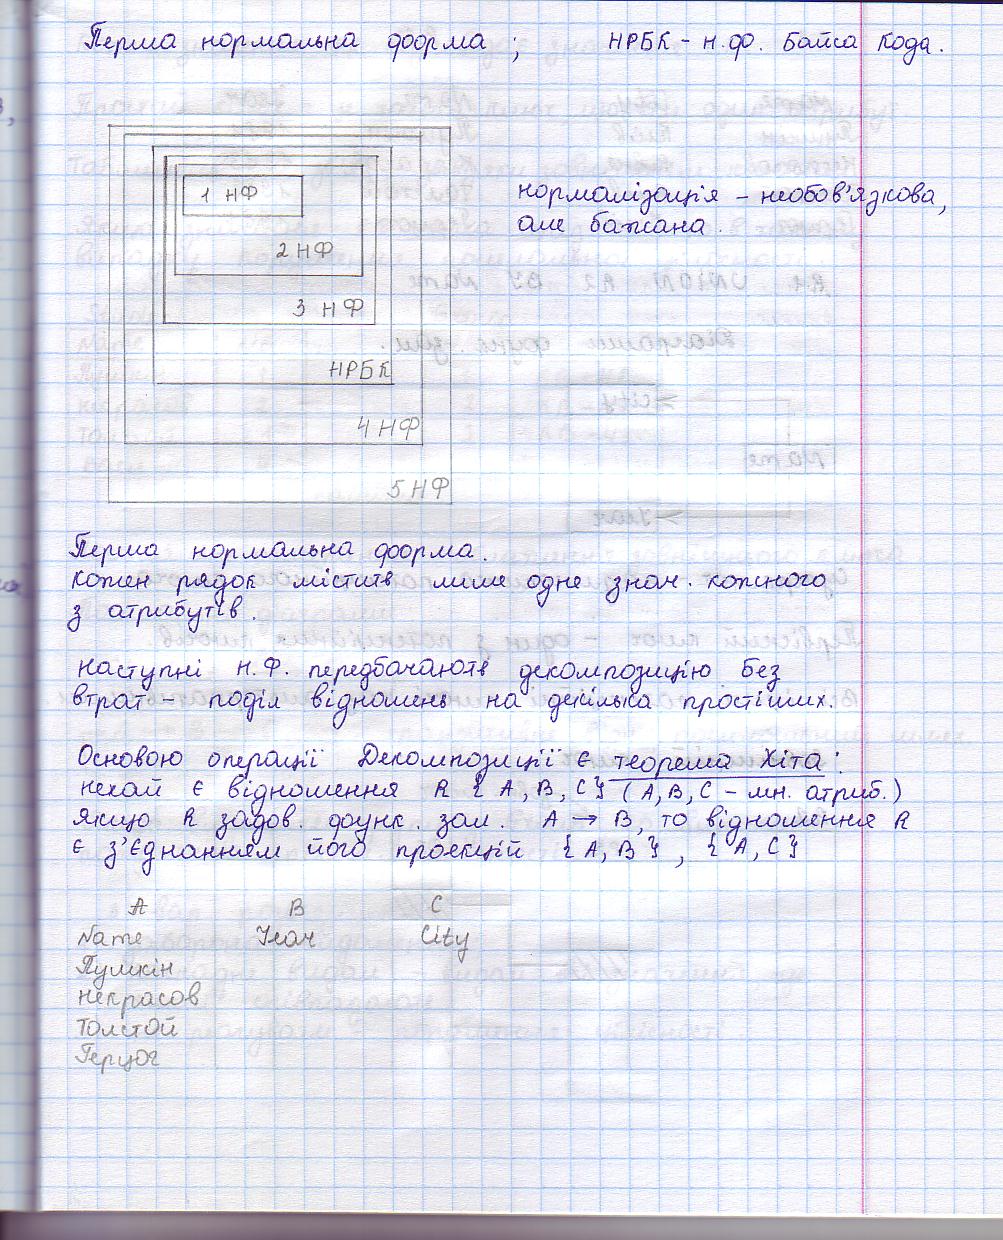 Перша нормальна форма ; НРБК - н.ф. Байса Кода.
1 НФ
2 НФ
3 НФ
НРБК
4 НФ
5 НФ
нормалізація - необов'язкова,
але бажана.
Перша нормальна форма.
кожен рядок містить лише одне знач. кожного
з атрибутів.
наступні Н.Ф. передбачають декомпозицію без
втрат - поділ відношень на декілька простіших.
Основою операції Декомпозиції є теорема Хіта:
нехай є відношення R { A, B, C } ( A, B, C - мн. атриб.)
якщо R задов. функ. зал. A → B, то відношення R
є з'єднанням його проекцій { A, B } , { A, C }
A B C
Name Year City
Пушкін
некрасов
Толстой
Герцог